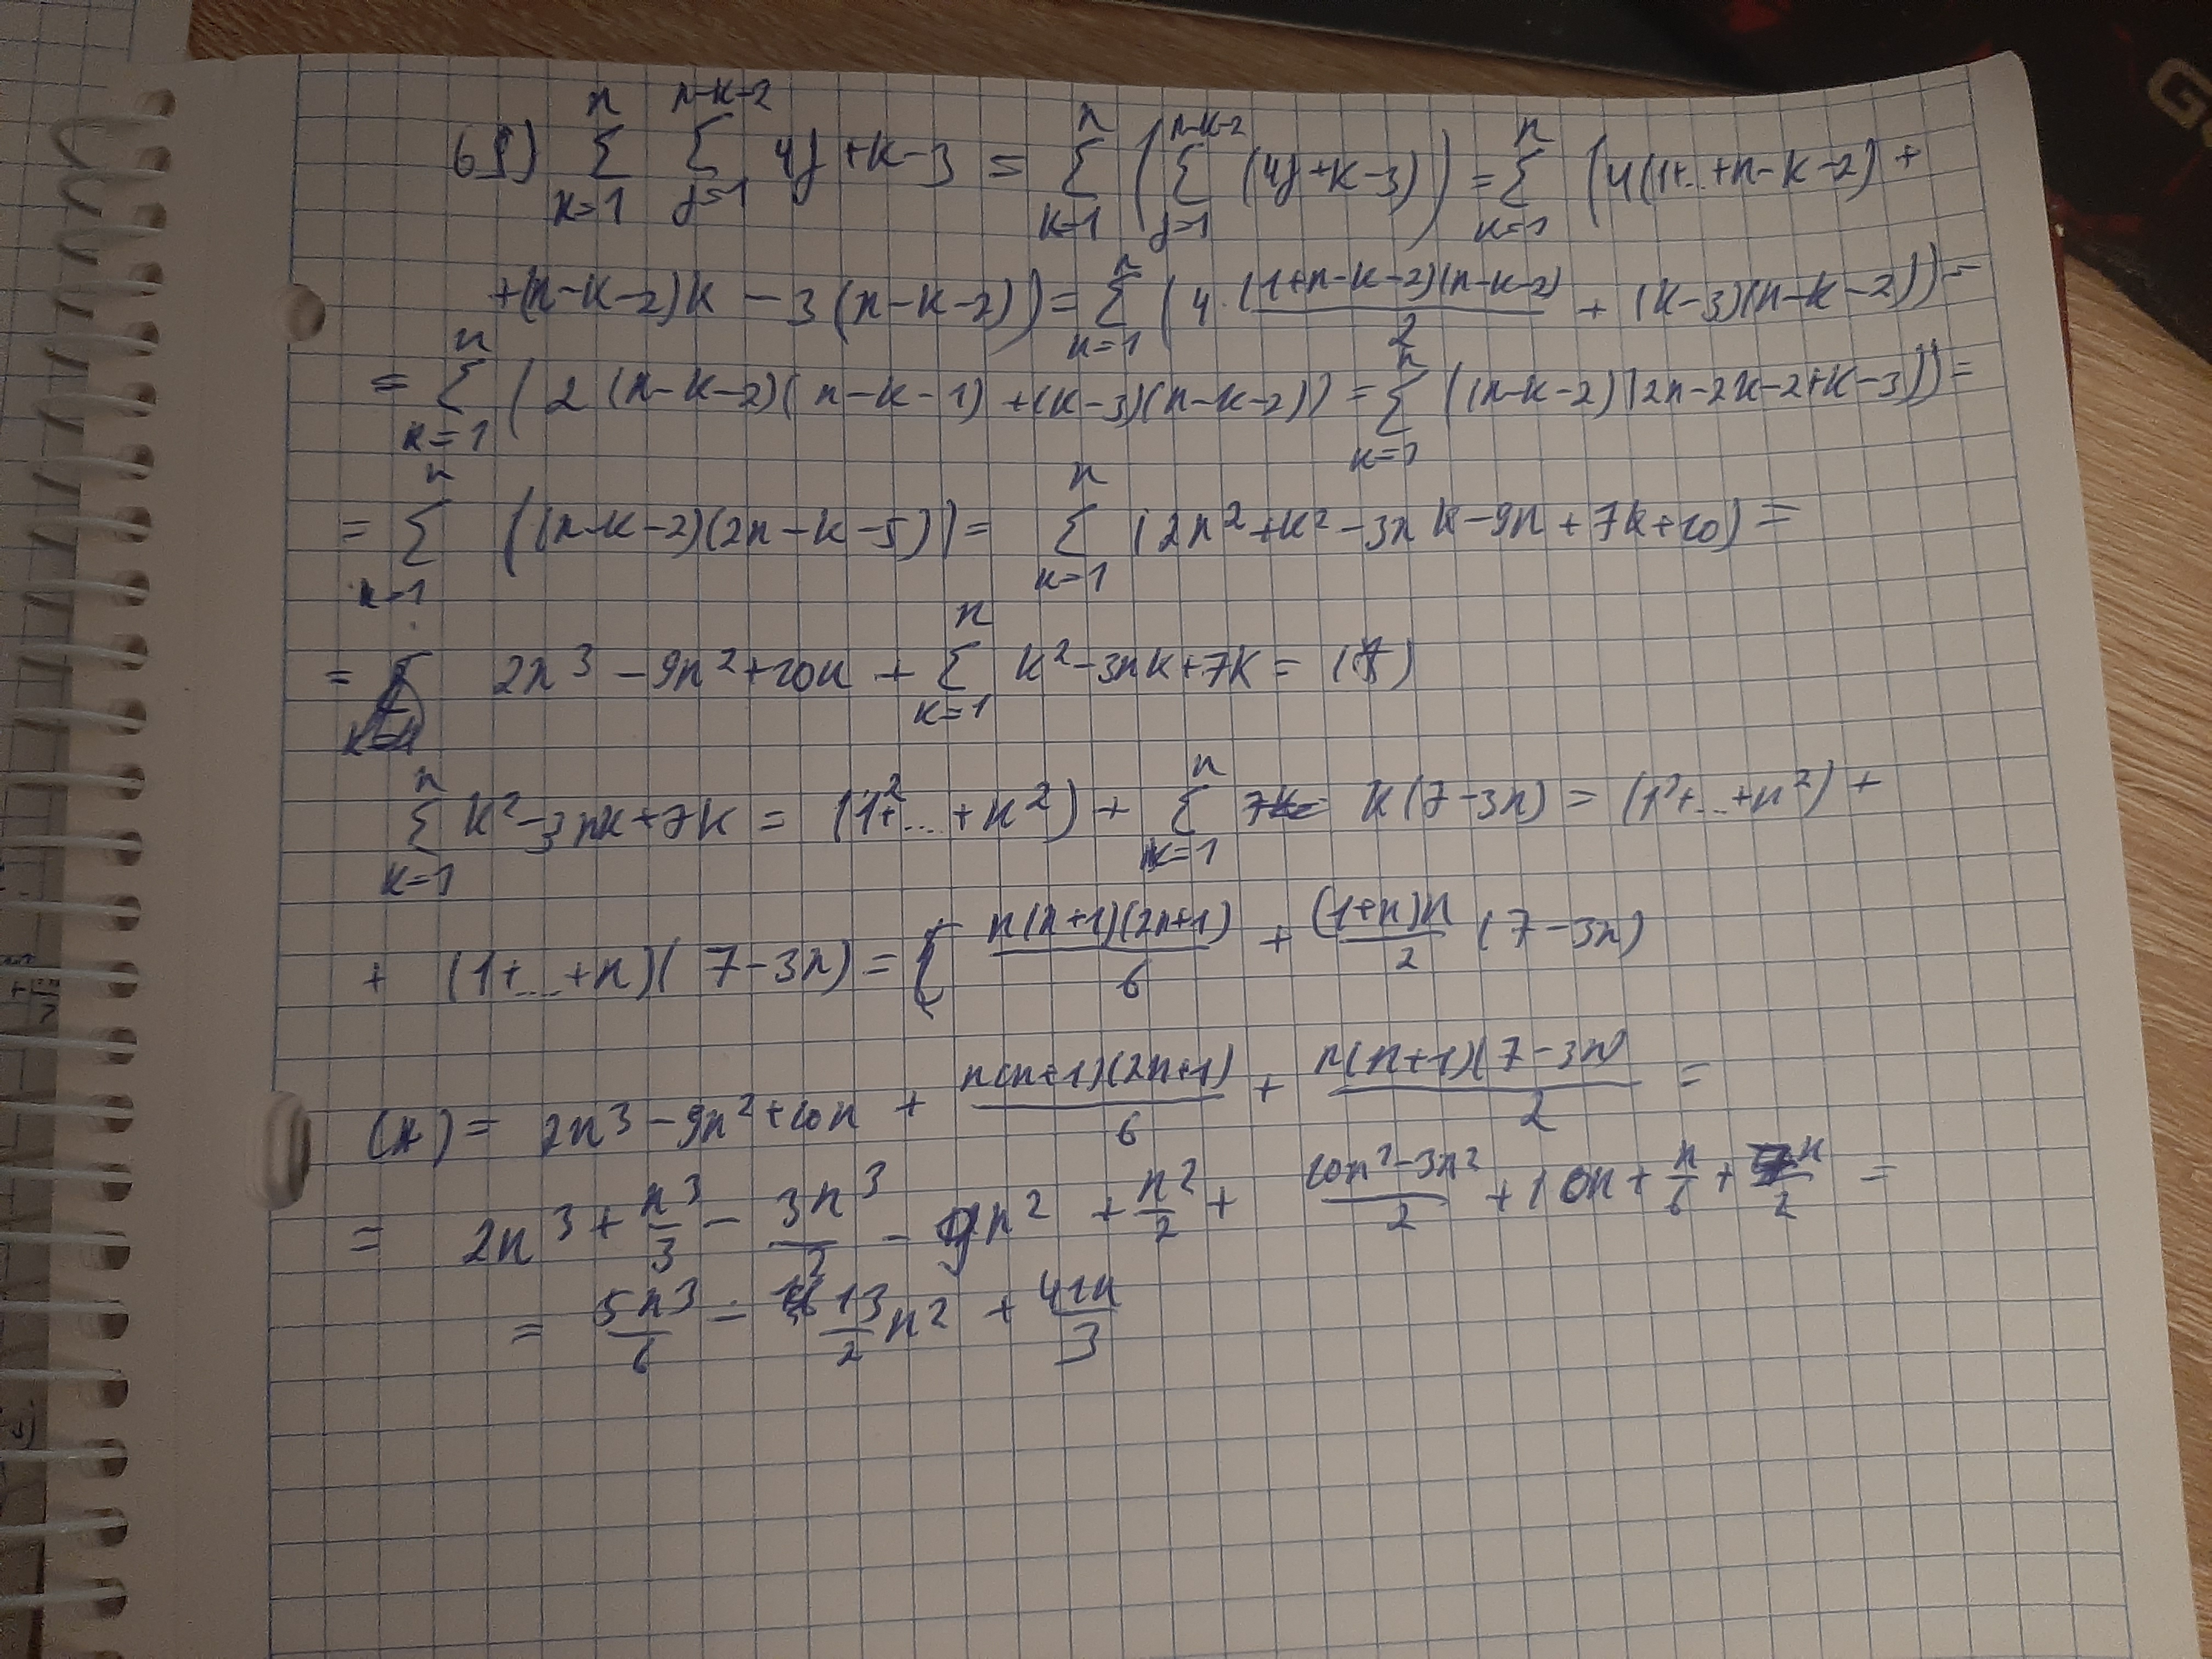 69) \sum_{k=1}^{n} \sum_{j=1}^{n-k-2} 4j+k-3 = \sum_{k=1}^{n} (\sum_{j=1}^{n-k-2} (4j+k-3)) = \sum_{k=1}^{n} (4(1+..+n-k-2)+
+(n-k-2)k - 3(n-k-2)) = \sum_{k=1}^{n} (4 \cdot \frac{(1+n-k-2)(n-k-2)}{2} + (k-3)(n-k-2)) =
= \sum_{k=1}^{n} (2(n-k-2)(n-k-1)+(k-3)(n-k-2)) = \sum_{k=1}^{n} ((n-k-2)(2n-2k-2+k-3)) =
= \sum_{k=1}^{n} ((n-k-2)(2n-k-5)) = \sum_{k=1}^{n} (2n^2+k^2-3nk-9n+7k+10) =
= 2n^3-9n^2+10n + \sum_{k=1}^{n} k^2-3nk+7k = (*)
\sum_{k=1}^{n} k^2-3nk+7k = (1^2+...+n^2) + \sum_{k=1}^{n} k(7-3n) = (1^2+...+n^2) +
+ (1+...+n)(7-3n) = \frac{n(n+1)(2n+1)}{6} + \frac{(1+n)n}{2} (7-3n)
(*) = 2n^3-9n^2+10n + \frac{n(n+1)(2n+1)}{6} + \frac{n(n+1)(7-3n)}{2} =
= 2n^3 + \frac{n^3}{3} - \frac{3n^3}{2} - 9n^2 + \frac{n^2}{2} + +10n + \frac{n}{6} + =
= \frac{5n^3}{6} - \frac{13}{2} n^2 + \frac{41n}{3}